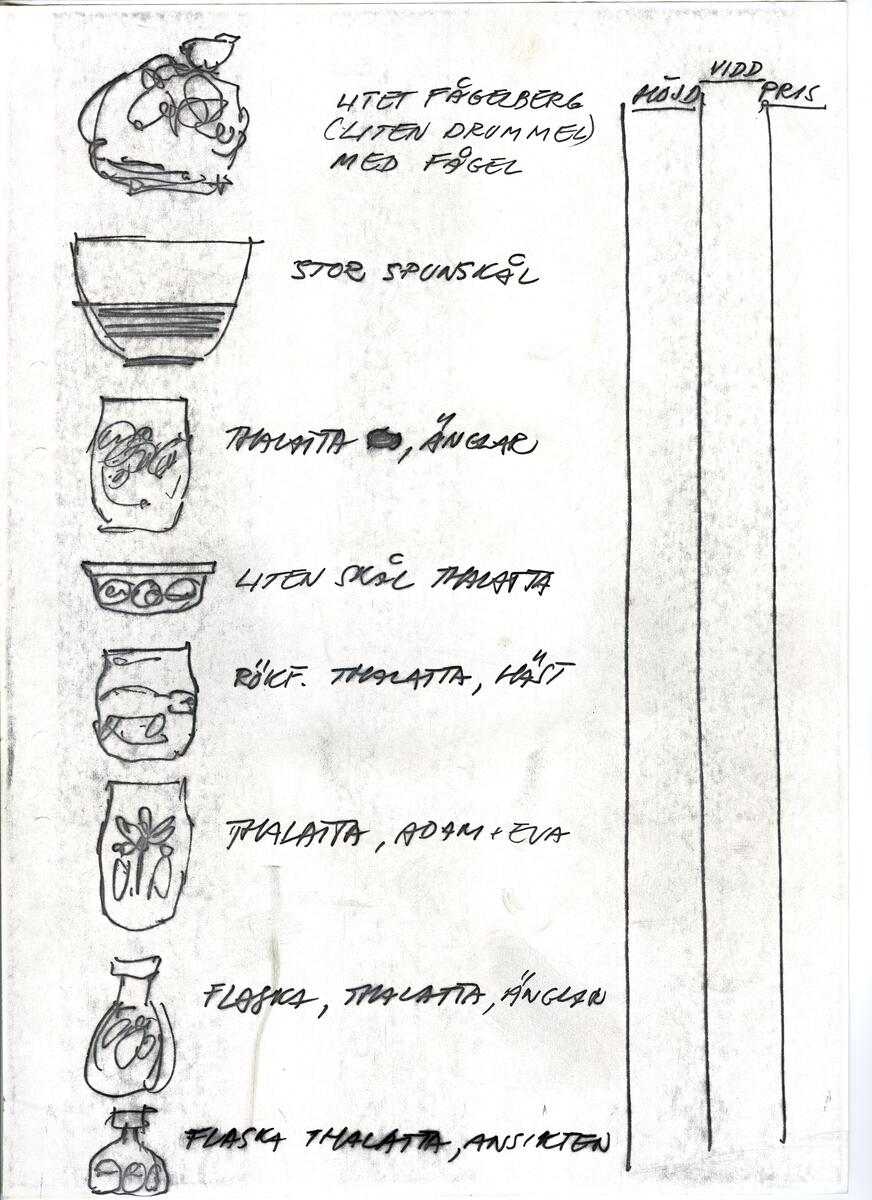 HÖJD VIDD PRIS
LITET FÅGELBERG
(LITEN DRUMMEL)
MED FÅGEL
STOR SPUNSKÅL
THALATTA , ÄNGLAR
LITEN SKÅL THALATTA
RÖKF. THALATTA, HÄST
THALATTA, ADAM + EVA
FLASKA, THALATTA, ÄNGLAR
FLASKA THALATTA, ANSIKTEN